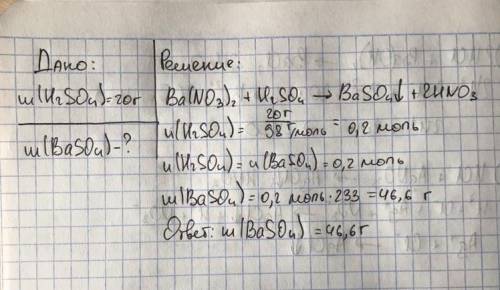 Дано:
m(H₂SO₄)=20г
m(BaSO₄)-?
Решение:
Ba(NO₃)₂ + H₂SO₄ → BaSO₄↓ + 2HNO₃
n(H₂SO₄) = 20г / 98 г/моль = 0,2 моль
n(H₂SO₄) = n(BaSO₄) = 0,2 моль
m(BaSO₄) = 0,2 моль · 233 = 46,6 г
Ответ: m(BaSO₄) = 46,6г